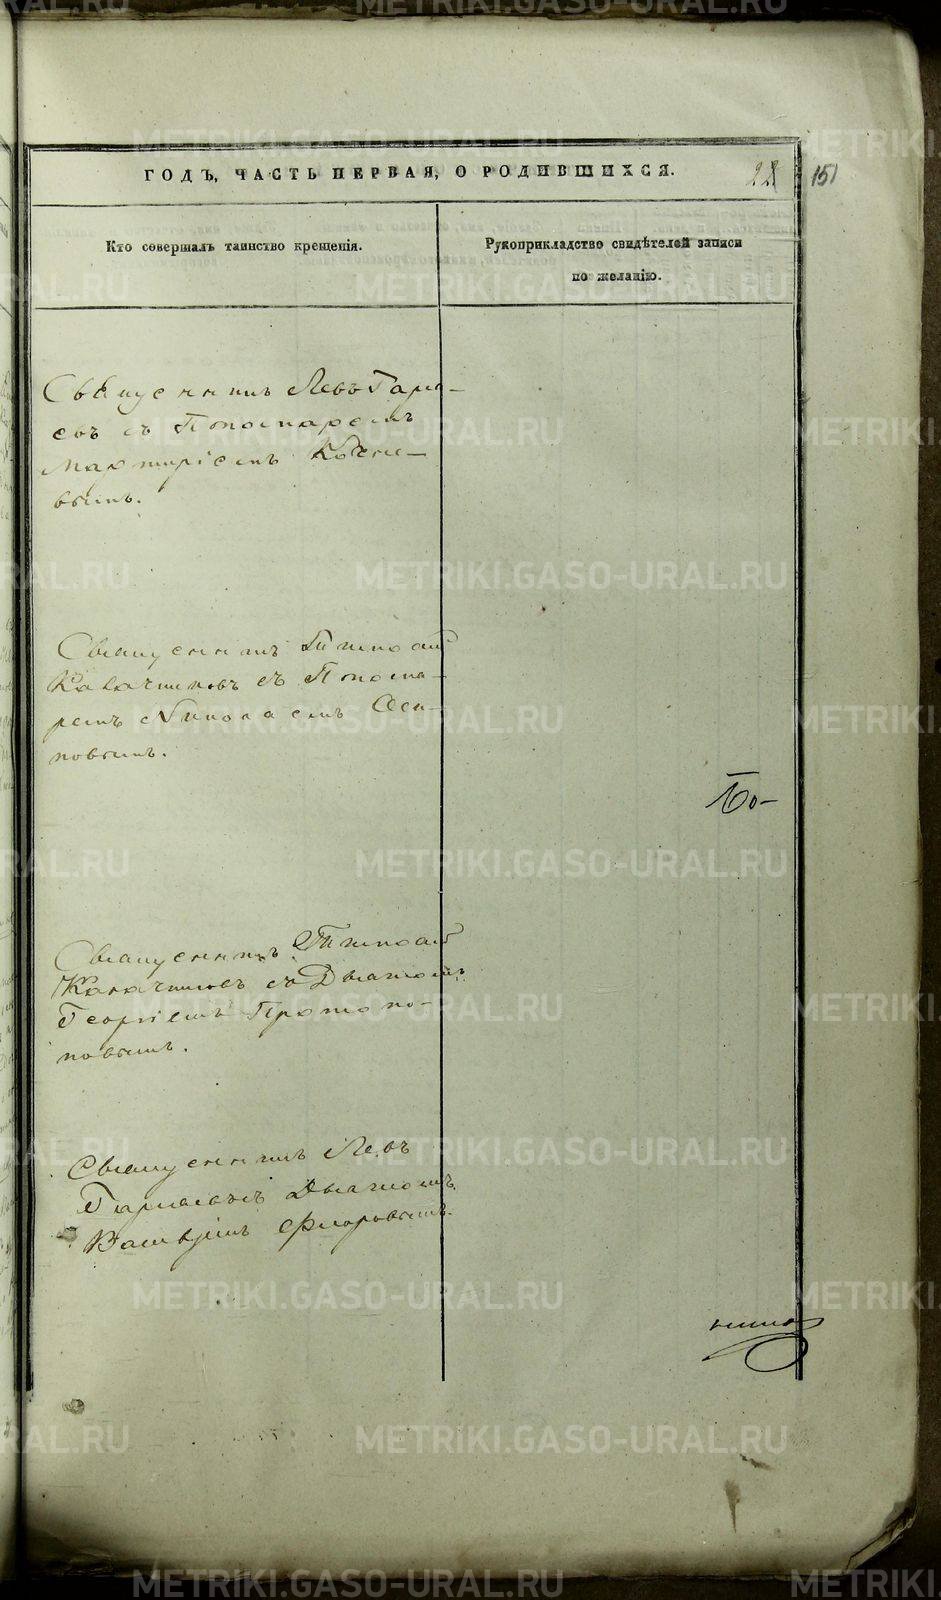 ГОДЪ, ЧАСТЬ ПЕРВАЯ, О РОДИВШИХСЯ.
151
Кто совершалъ таинство крещенія.
Рукоприкладство свидѣтелей записи
по желанію.
Священникъ Левъ Гаря-
евъ съ Пономаремъ
Мартиріемъ Кочне-
вымъ.
Священникъ Тимофей
Калачниковъ съ Понома-
ремъ Николаемъ Оси-
повымъ.
Священникъ Тимофей
Калачниковъ съ Дьячкомъ
Георгіемъ Протопо-
повымъ.
Священникъ Левъ
Гаряевъ съ Дьячкомъ
Василіемъ Флоровымъ.
METRIKI.GASO-URAL.RU